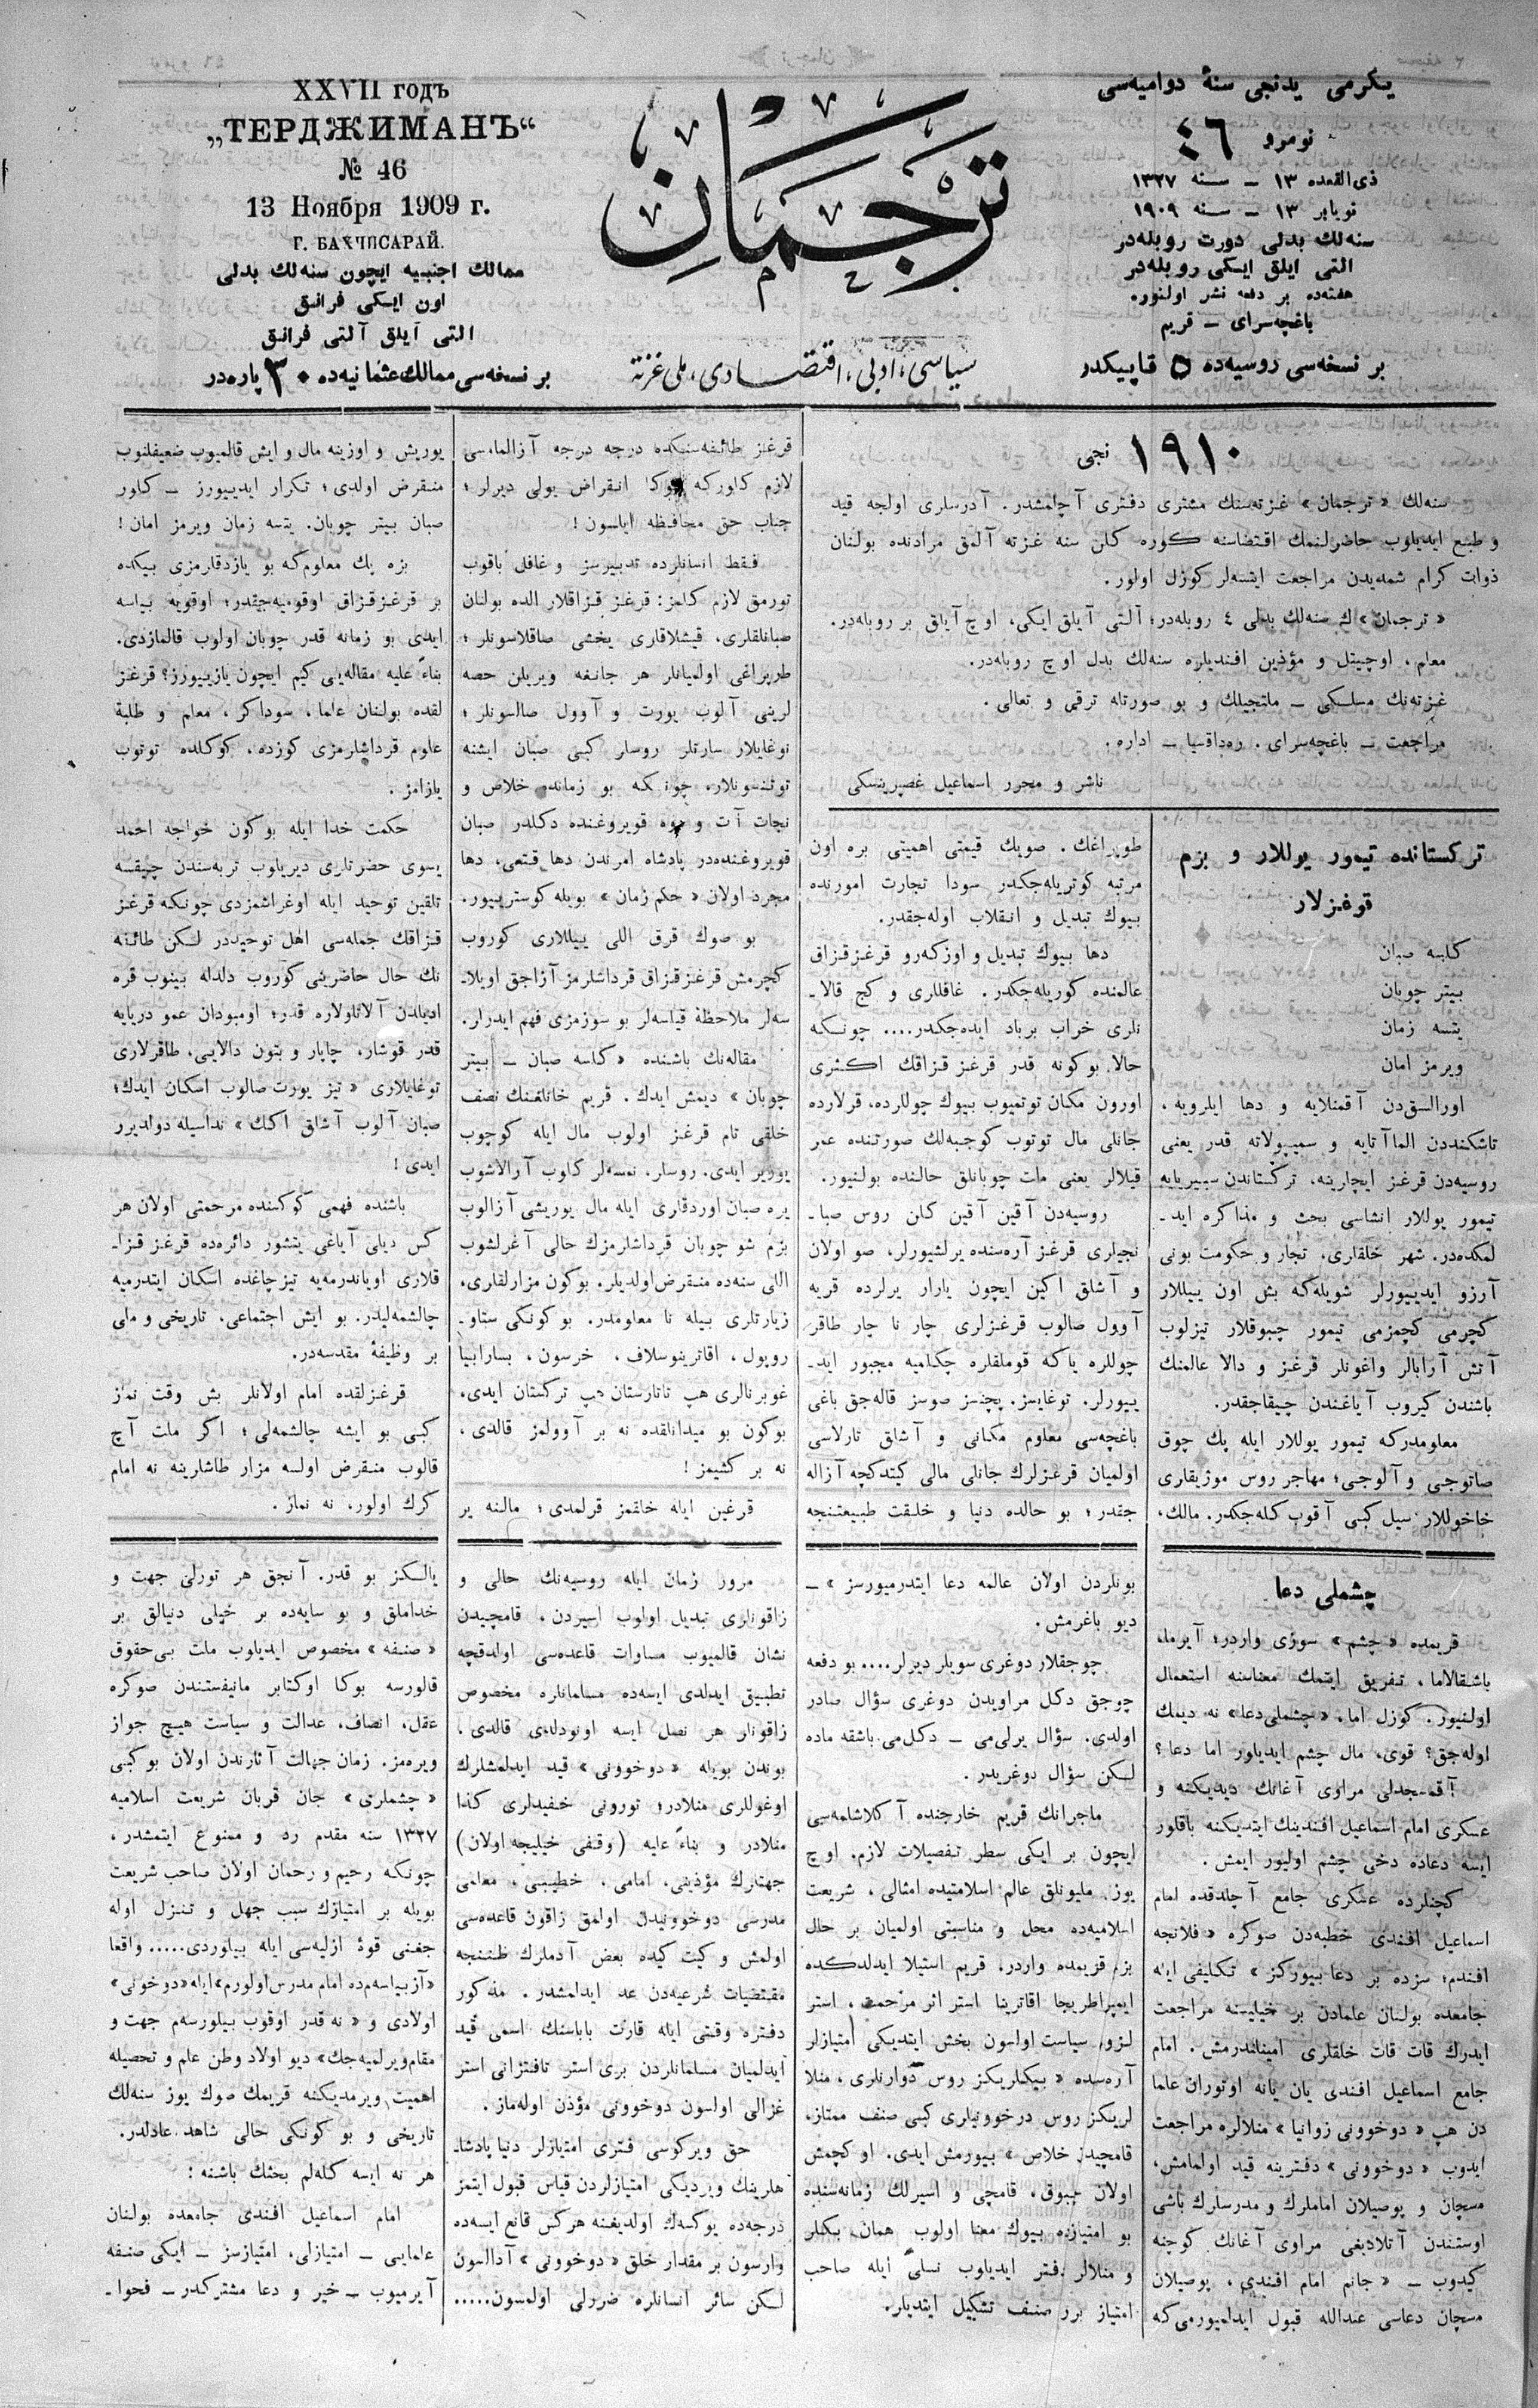 XXVII годъ
„ТЕРДЖИМАНЪ“
№ 46
13 Ноября 1909 г.
Г. БАХЧИСАРАЙ.
ممالك اجنبيه ايچون سنه‌لك بدلى
اون ايكى فرانق
التى آيلق آلتى فرانق
بر نسخه‌سى ممالك عثمانيه‌ده ٣٠ پاره‌در
ترجمان
سياسى، ادبى، اقتصادى، ملى غزته
يكرمى يدنجى سنۀ دواميه‌سى
نومرو ٤٦
ذى القعده ١٣ – سنه ١٣٢٧
نويابر ١٣ – سنه ١٩٠٩
سنه‌لك بدلى دورت روبله‌در
التى ايلق ايكى روبله‌در
هفته‌ده بر دفعه نشر اولنور.
باغچه‌سراى – قريم
بر نسخه‌سى روسيه‌ده ٥ قاپيكدر
١٩١٠ نجى
سنه‌لك « ترجمان » غزته‌سنك مشترى دفترى آچلمشدر. آدرسلرى اولجه قيد
و طبع ايديلوب حاضرلنمك اقتضاسنه كوره كلن سنه غزته آلمق مرادنده بولنان
ذوات كرام شمديدن مراجعت ايتسه‌لر كوزل اولور.
« ترجمان »ك سنه‌لك بدلى ٤ روبله‌در؛ آلتى آيلق ايكى، اوچ آيلق بر روبله‌در.
معلم، اوچيتل و مؤذين افنديلره سنه‌لك بدل اوچ روبله‌در.
غزته‌نك مسلكى – ملتجيلك و بو صورتله ترقى و تعالى.
مراجعت – باغچه‌سراى. ره‌داقسيا – اداره.
ناشر و محرر اسماعيل غصپرينسكى
تركستانده تيمور يوللار و بزم
قرغزلار
كلسه صبان
بيتر چوبان
يتسه زمان
ويرمز امان
اورالسق‌دن آقمنلايه و دها ايلرويه،
تاشكنددن الماآتايه و سميپولاته قدر يعنى
روسيه‌دن قرغز ايچارينه، تركستاندن سيبيريايه
تيمور يوللار انشاسى بحث و مذاكره ايد ـ
لمكده‌در. شهر خلقلرى، تجار و حكومت بونى
آرزو ايدييورلر شويله‌كه بش اون ييللار
كچرمى كچمزمى تيمور چبوقلار تيزلوب
آتش آرابالر واغونلر قرغز و دالا عالمنك
باشندن كيروب آياغندن چيقاجقدر.
معلومدركه تيمور يوللار ايله پك چوق
صاتوجى و آلوجى؛ مهاجر روس موژيقلرى
خاخوللار سيل كبى آقوب كله‌جكدر. مالك،
طوپراغك. صويك قيمتى اهميتى بره اون
مرتبه كوتريله‌جكدر سودا تجارت امورنده
بيوك تبديل و انقلاب اوله‌جقدر.
دها بيوك تبديل و اوزكه‌رو قرغز قزاق
عالمنده كوريله‌جكدر. غافللرى و كچ قالا ـ
نلرى خراب برباد ايده‌جكدر.... چونكه
حالا بوكونه قدر قرغز قزاقك اكثرى
اورون مكان توتميوب بيوك چوللرده، قرلارده
جانلى مال توتوب كوچبه‌لك صورتنده عمر
قيلالر يعنى ملت چوبانلق حالنده بولنيور.
روسيه‌دن آقين آقين كلن روس صبا ـ
نجيلرى قرغز آره‌سنده يرلشيورلر، صو اولان
و آشلق اكين ايچون يارار يرلرده قريه
آوول صالوب قرغزلرى چار نا چار طاقر
چوللره ياكه قوملقلره چكلميه مجبور ايد ـ
ييورلر. توغايسز. پچنسز صوسز قاله‌جق باغى
باغچه‌سى معلوم مكانى و آشلق تارلاسى
اولميان قرغزلرك جانلى مالى كيتدكچه آزاله
جقدر؛ بو حالده دنيا و خلقت طبيعتنجه
قرغز طائفه‌سنكده درجه درجه آزالماسى
لازم كلوركه بوكا انقراض يولى ديرلر؛
جناب حق محافظه ايلسون!
فقط انسانلرده تدبيرسز و غافل باقوب
تورمق لازم كلمز: قرغز قزاقلار الده بولنان
صبانلقلرى، قيشلاقلرى يخشى صاقلاسونلر؛
طوپراغى اولميانلر هر جانغه ويريلن حصه
لرينى آلوب يورت و آوول صالسونلر؛
نوغايلار سارتلر روسلر كبى صبان ايشنه
توتنسونلار، چونكه بو زمانده خلاص و
نجات آت و دوه قويروغنده دكلدر صبان
قويروغنده‌در پادشاه امرندن دها قتعى، دها
مجرد اولان « حكم زمان » بويله كوستريپور.
بو صوك قرق اللى ييللارى كوروب
كچرمش قرغز قزاق قرداشلرمز آزاجق اويلا ـ
سه‌لر ملاحظۀ قياسه‌لر بو سوزمزى فهم ايدرلر.
مقاله‌نك باشنده « كلسه صبان – بيتر
چوبان » ديمش ايدك. قريم خانلغنك نصف
خلقى تام قرغز اولوب مال ايله كوچوب
يورير ايدى. روسلر، نمسه‌لر كلوب آرالاشوب
يره صبان اوردقلرى ايله مال يوريشى آزالوب
بزم شو چوبان قرداشلرمزك حالى آغرلشوب
اللى سنه‌ده منقرض اولديلر. بوكون مزارلقلرى،
زيارتلرى بيله نا معلومدر. بوكونكى ستاو ـ
روپول، اقاترينوسلاف، خرسون، بسارابيا
غوبرنالرى هپ تاتارستان هپ تركستان ايدى،
بوكون بو ميدانلقده نه بر آوولمز قالدى،
نه بر كشيمز!
قرغين ايله خلقمز قرلمدى؛ مالنه ير
يوريش و اوزينه مال و ايش قالميوب ضعيفلنوب
منقرض اولدى؛ تكرار ايدييورز – كلور
صبان بيتر چوبان. يتسه زمان ويرمز امان!
بزه پك معلوم‌كه بو يازدقلرمزى بيكده
بر قرغز قزاق اوقوميه‌جقدر؛ اوقويه بيلسه
ايدى بو زمانه قدر چوبان اولوب قالمازدى.
بناءً عليه مقاله‌يى كيم ايچون يازييورز؟ قرغز
لقده بولنان علما، سوداكر، معلم و طلبۀ
علوم قرداشلرمزى كوزده، كوكلده توتوب
يازامز.
حكمت خدا ايله بوكون خواجه احمد
يسوى حضرتلرى ديريلوب تربه‌سندن چيقسه
تلقين توحيد ايله اوغراشمزدى چونكه قرغز
قزاقك جمله‌سى اهل توحيددر لكن طائفه
نك حال حاضرينى كوروب دلدله بينوب قره
ايديلدن آلاتاولاره قدر؛ اومبودان عمو دريايه
قدر قوشار، چاپار و بتون دالايى، طاقرلارى
توغايلارى « تيز يورت صالوب اسكان ايدك؛
صبان آلوب آشلق اكك » نداسيله دولديرر
ايدى!
باشنده فهمى كوكسنده مرحمتى اولان هر
كس ديلى آياغى يتشور دائره‌ده قرغز قزا ـ
قلارى اوياندرمه‌يه تيزچاغده اسكان ايتدرميه
چالشمه‌ليدر. بو ايش اجتماعى، تاريخى و ملى
بر وظيفۀ مقدسه‌در.
قرغزلقده امام اولانلر بش وقت نماز
كبى بو ايشه چالشمه‌لى؛ اكر ملت آچ
قالوب منقرض اولسه مزار طاشلرينه نه امام
كرك اولور، نه نماز.
چشملى دعا
قريمده « چشم » سوزى واردر؛ آيرما،
باشقالاما، تفريق ايتمك معناسنه استعمال
اولنيور. كوزل اما، « چشملى دعا » نه ديمك
اوله‌جق؟ قوى، مال چشم ايديلور اما دعا؟
آقمسجدلى مراوى آغانك ديديكنه و
عسكرى امام اسماعيل افندينك ايتديكنه باقلور
ايسه دعاده دخى چشم اوليور ايمش.
كچنلرده عسكرى جامع آچلدقده امام
اسماعيل افندى خطبه‌دن صوكره « فلانجه
افندم؛ سزده بر دعا بيوركز » تكليفى ايله
جامعده بولنان علمادن بر خيليسنه مراجعت
ايدرك قات قات خلقلرى امينلندرمش. امام
جامع اسماعيل افندى يان يانه اوتوران علما
دن هپ « دوخوونى زوانيا » منلالره مراجعت
ايدوب « دوخوونى » دفترينه قيد اولمامش،
مسچان و پوصيلان اماملرك و مدرسلرك باشى
اوستندن آتلاديغى مراوى آغانك كوچنه
كيدوب – « جانم امام افندى، پوصيلان
مسچان دعاسى عندالله قبول ايدلميورمى‌كه
بونلردن اولان عالمه دعا ايتدرميورسز » –
ديو باغرمش.
چوجقلار دوغرى سويلر ديرلر.... بو دفعه
چوجق دكل مراويدن دوغرى سؤال صادر
اولدى. سؤال يرلى‌مى – دكل‌مى باشقه ماده
لكن سؤال دوغريدر.
ماجرانك قريم خارجنده آكلاشلمه‌سى
ايچون بر ايكى سطر تفصيلات لازم. اوچ
يوز مليونلق عالم اسلامتيده امثالى، شريعت
اسلاميه‌ده محل و مناسبتى اولميان بر حال
بزم قريمده واردر. قريم استيلا ايدلدكده
ايمپراطريچا اقاترينا استر اثر مرحمت، استر
لزوم سياست اولسون بخش ايتديكى امتيازلر
آره‌سنده « بيكلريكز روس دوارنلرى، منلا
لريكز روس درخوونيلرى كبى صنف ممتاز،
قامچيدن خلاص » بيورمش ايدى. او كچمش
اولان چبوق، قامچى و اسيرلك زمانه‌سنده
بو امتيازده بيوك معنا اولوب همان بكلر
و منلالر دفتر ايديلوب نسلى ايله صاحب
امتياز برر صنف تشكيل ايتديلر.
مرور زمان ايله روسيه‌نك حالى و
زاقونلرى تبديل اولوب اسيردن، قامچيدن
نشان قالميوب مساوات قاعده‌سى اولدقچه
تطبيق ايدلدى ايسه‌ده مسلمانلره مخصوص
زاقونلر هر نصل ايسه اونودلدى قالدى.
بوندن بويله « دوخوونى » قيد ايدلمشلرك
اوغوللرى منلادر؛ تورونى حفيدلرى كذا
منلادر و بناءً عليه (وقفى خيليجه اولان)
جهتلرك مؤذينى، امامى، خطيبى، معلمى
مدرسى دوخوونيدن اولمق زاقون قاعده‌سى
اولمش و كيت كيده بعض آدملرك ظننجه
مقتضيات شرعيه‌دن عد ايدلمشدر. مذكور
دفتره وقتى ايله قارت باباسنك اسمى قيد
ايدلميان مسلمانلردن برى استر تافتزانى استر
غزالى اولسون دوخوونى مؤذن اوله‌ماز.
حق ويركوسى فطرى امتيازلر دنيا پادشا ـ
هلرينك ويرديكى امتيازلردن قياس قبول ايتمز
درجه‌ده يوكسه‌ك اولديغنه هركس قانع ايسه‌ده
وارسون بر مقدار خلق « دوخوونى » آدالسون
لكن سائر انسانلره ضررلى اولمسون.....
يالكز بو قدر. آنجق هر تورلى جهت و
خداملق و بو سايه‌ده بر خيلى دنيالق بر
« صنفه » مخصوص ايديلوب ملت بى‌حقوق
قالورسه بوكا اوكتابر مانيفستندن صوكره
عقل، انصاف، عدالت و سياست هيچ جواز
ويره‌مز. زمان جهالت آثارندن اولان بو كبى
« چشملرى » جان قربان شريعت اسلاميه
١٣٢٧ سنه مقدم رد و ممنوع ايتمشدر،
چونكه رحيم و رحمان اولان صاحب شريعت
بويله بر امتيازك سبب جهل و تنزل اوله
جغنى قوۀ ازليه‌سى ايله بيلوردى..... واقعا
« آز بيلسه‌م‌ده امام مدرس اولورم » ايله « دوخونى »
اولادى و « نه قدر اوقوب بيلورسه‌م جهت و
مقام ويرلميه‌جك » ديو اولاد وطن علم و تحصيله
اهميت ويرمديكنه قريمك صوك يوز سنه‌لك
تاريخى و بو كونكى حالى شاهد عادلدر.
هر نه ايسه كله‌لم بحثك باشنه:
امام اسماعيل افندى جامعده بولنان
علمايى – امتيازلى، امتيازسز – ايكى صنفه
آيرميوب – خير و دعا مشتركدر – فحوا ـ